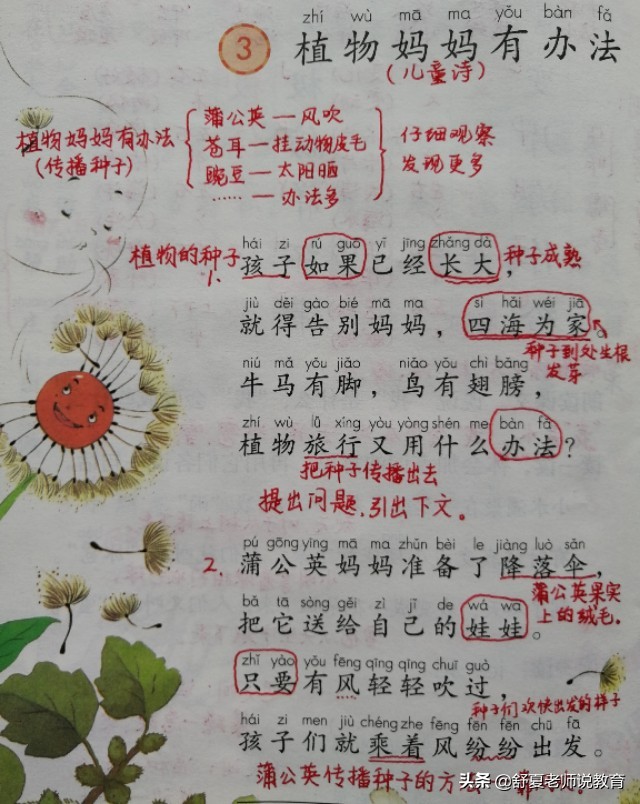 zhí wù mā ma yǒu bàn fǎ
3 植物妈妈有办法
(儿童诗)
植物妈妈有办法
(传播种子)
蒲公英—风吹
苍耳—挂动物皮毛
豌豆—太阳晒
……—办法多
仔细观察
发现更多
hái zi rú guǒ yǐ jīng zhǎng dà
植物的种子 孩子如果已经长大, 种子成熟
1.
jiù děi gào bié mā ma sì hǎi wéi jiā
就得告别妈妈,四海为家
种子到处生根
发芽
niú mǎ yǒu jiǎo niǎo yǒu chì bǎng
牛马有脚,鸟有翅膀,
zhí wù lǚ xíng yòu yòng shén me bàn fǎ
植物旅行又用什么办法?
把种子传播出去
提出问题,引出下文。
pú gōng yīng mā ma zhǔn bèi le jiàng luò sǎn
2. 蒲公英妈妈准备了降落伞,
蒲公英果实
上的绒毛.
bǎ tā sòng gěi zì jǐ de wá wa
把它送给自己的娃娃。
zhǐ yào yǒu fēng qīng qīng chuī guò
只要有风轻轻吹过,
种子们欢快出发的样子
hái zi men jiù chéng zhe fēng fēn fēn chū fā
孩子们就乘着风纷纷出发。
蒲公英传播种子的方
头条 @舒夏老师说教育